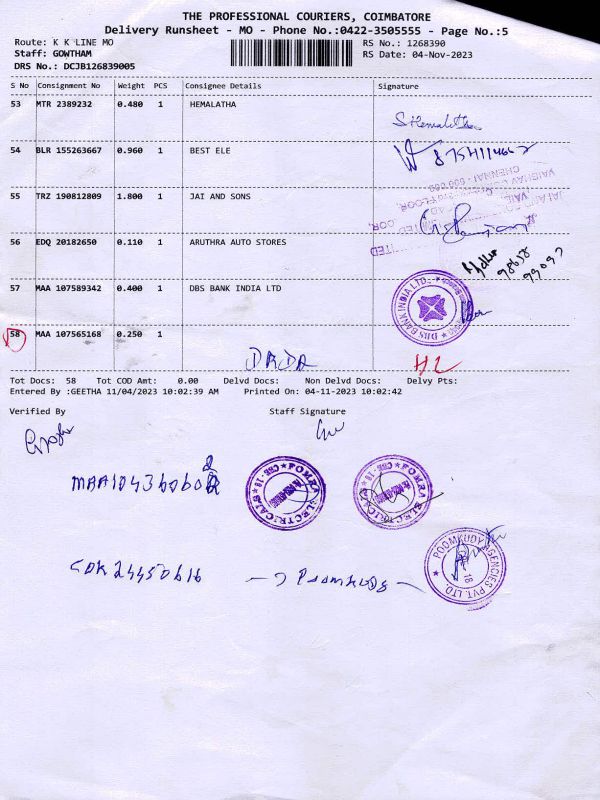 THE PROFESSIONAL COURIERS, COIMBATORE
Delivery Runsheet - MO - Phone No.:0422-3505555 - Page No.:5
Route: K K LINE MO RS No.: 1268390
Staff: GOWTHAM RS Date: 04-Nov-2023
DRS No.: DCJB126839005
S No Consignment No Weight PCS Consignee Details Signature
53 MTR 2389232 0.480 1 HEMALATHA
S Hemalatha
54 BLR 155263667 0.960 1 BEST ELE
55 TRZ 190812809 1.800 1 JAI AND SONS
56 EDQ 20182650 0.110 1 ARUTHRA AUTO STORES
57 MAA 107589342 0.400 1 DBS BANK INDIA LTD
DBS BANK INDIA LTD
58 MAA 107565168 0.250 1
Tot Docs: 58 Tot COD Amt: 0.00 Delvd Docs: Non Delvd Docs: Delvy Pts:
Entered By :GEETHA 11/04/2023 10:02:39 AM Printed On: 04-11-2023 10:02:42
Verified By Staff Signature
POMRA ELECTRICALS CBE-18
POMRA ELECTRICALS CBE-18
POOMKUDY AGENCIES PVT. LTD 18